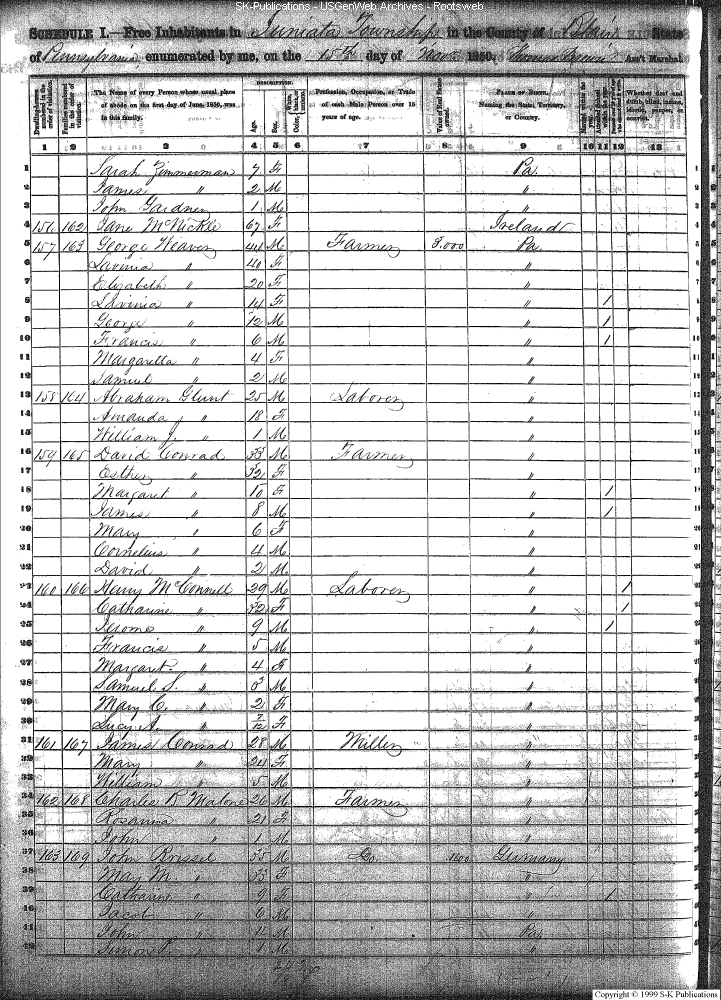 SK-Publications - USGenWeb Archives - Rootsweb
SCHEDULE I.—Free Inhabitants in Juniata Township in the County of Blair State
of Pennsylvania enumerated by me, on the 15th day of 1850. Ass't Marshal.
Dwelling-houses numbered in the order of visitation. Families numbered in the order of visitation. The Name of every Person whose usual place of abode on the first day of June, 1850, was in this family. DESCRIPTION. Age. Sex. Color, Profession, Occupation, or Trade of each Male Person over 15 years of age. Value of Real Estate owned. PLACE OF BIRTH. Naming the State, Territory, or Country. Married within the year. Attended School within the year. Whether deaf and dumb, blind, insane, idiotic, pauper, or convict.
1 2 3 4 5 6 7 8 9 10 11 12 13
1 Sarah Zimmerman 7 F Pa. 1
2 James " 2 M " 2
3 John Gardner 1 M " 3
4 156 162 Jane McNickle 67 F Ireland 4
5 157 163 George Weaver 44 M Farmer 3.000 Pa 5
6 Lavinia " 40 F " 6
7 Elizabeth " 20 F " 7
8 Lavinia " 14 F " / 8
9 George " 12 M " / 9
10 Francis " 6 M " / 10
11 Margaretta " 4 F " 11
12 Samuel " 2 M " 12
13 158 164 Abraham Glunt 25 M Laborer " 13
14 Amanda " 18 F " 14
15 William J. " 1 M " 15
16 159 165 David Conrad 33 M Farmer " 16
17 Esther " 32 F " 17
18 Margaret " 10 F " / 18
19 James " 8 M " / 19
20 Mary " 6 F " 20
21 Cornelius " 4 M " 21
22 David " 2 M " 22
23 160 166 Henry McConnell 29 M Laborer " / 23
24 Catharine " 32 F " / 24
25 Jerome " 9 M " / 25
26 Francis " 5 M " 26
27 Margaret " 4 F " 27
28 Samuel S. " 3 M " 28
29 Mary C. " 2 F " 29
30 Lucy A. " 7/12 F " 30
31 161 167 James Conrad 28 M Miller " 31
32 Mary " 24 F " 32
33 William " 5 M " 33
34 162 168 Charles R Malone 26 M Farmer " 34
35 Rosanna " 21 F " 35
36 John " 1 M " 36
37 163 169 John Brissel 35 M Do. Germany 37
38 Mary M " 33 F " 38
39 Catharine " 9 F " / 39
40 Jacob " 6 M " 40
41 John " 4 M Pa 41
42 Simon P. " 1 M " 42
Copyright © 1999 S-K Publications